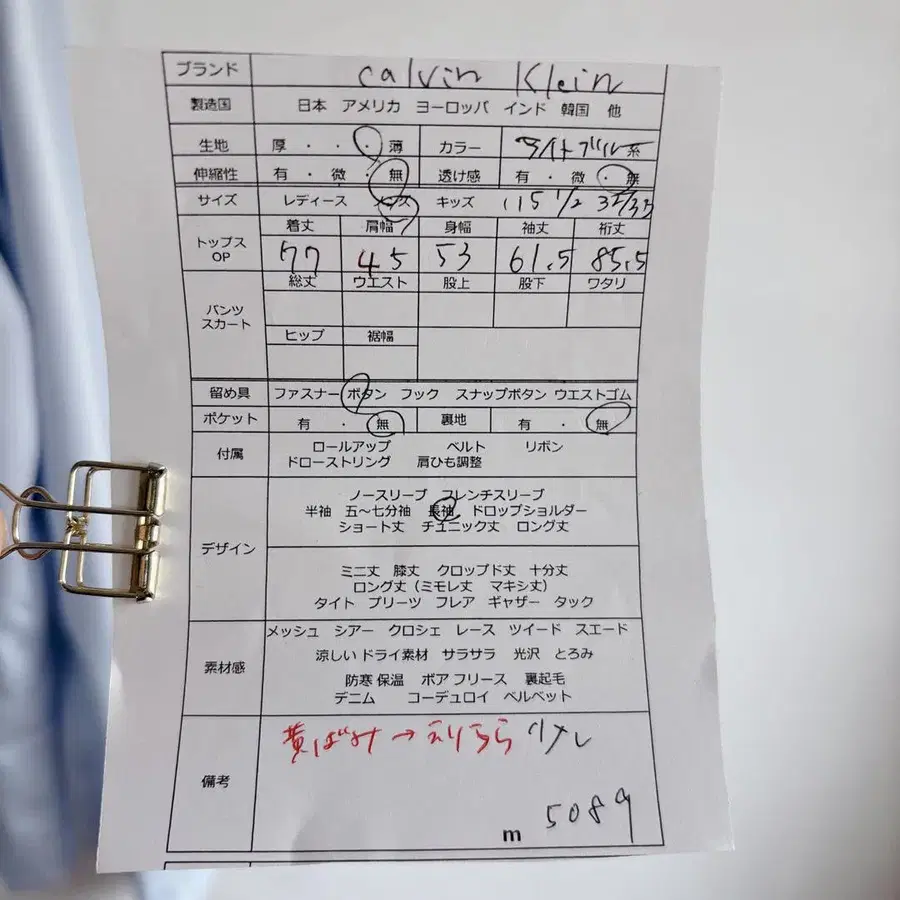 ブランド calvin Klein
製造国 日本 アメリカ ヨーロッパ インド 韓国 他
生地 厚・・・薄 カラー ライトブルー系
伸縮性 有・微・無 透け感 有・微・無
サイズ レディース メンズ キッズ 15 1/2 32/33
トップス OP
着丈 肩幅 身幅 袖丈 裄丈
77 45 53 61.5 85.5
パンツ スカート
総丈 ウエスト 股上 股下 ワタリ
ヒップ 裾幅
留め具 ファスナー ボタン フック スナップボタン ウエストゴム
ポケット 有・無 裏地 有・無
付属 ロールアップ ベルト リボン
ドローストリング 肩ひも調整
デザイン
ノースリーブ フレンチスリーブ
半袖 五〜七分袖 長袖 ドロップショルダー
ショート丈 チュニック丈 ロング丈
ミニ丈 膝丈 クロップド丈 十分丈
ロング丈（ミモレ丈 マキシ丈）
タイト プリーツ フレア ギャザー タック
素材感
メッシュ シアー クロシェ レース ツイード スエード
涼しい ドライ素材 サラサラ 光沢 とろみ
防寒 保温 ボア フリース 裏起毛
デニム コーデュロイ ベルベット
備考
黄ばみ→えりうら
m 5089